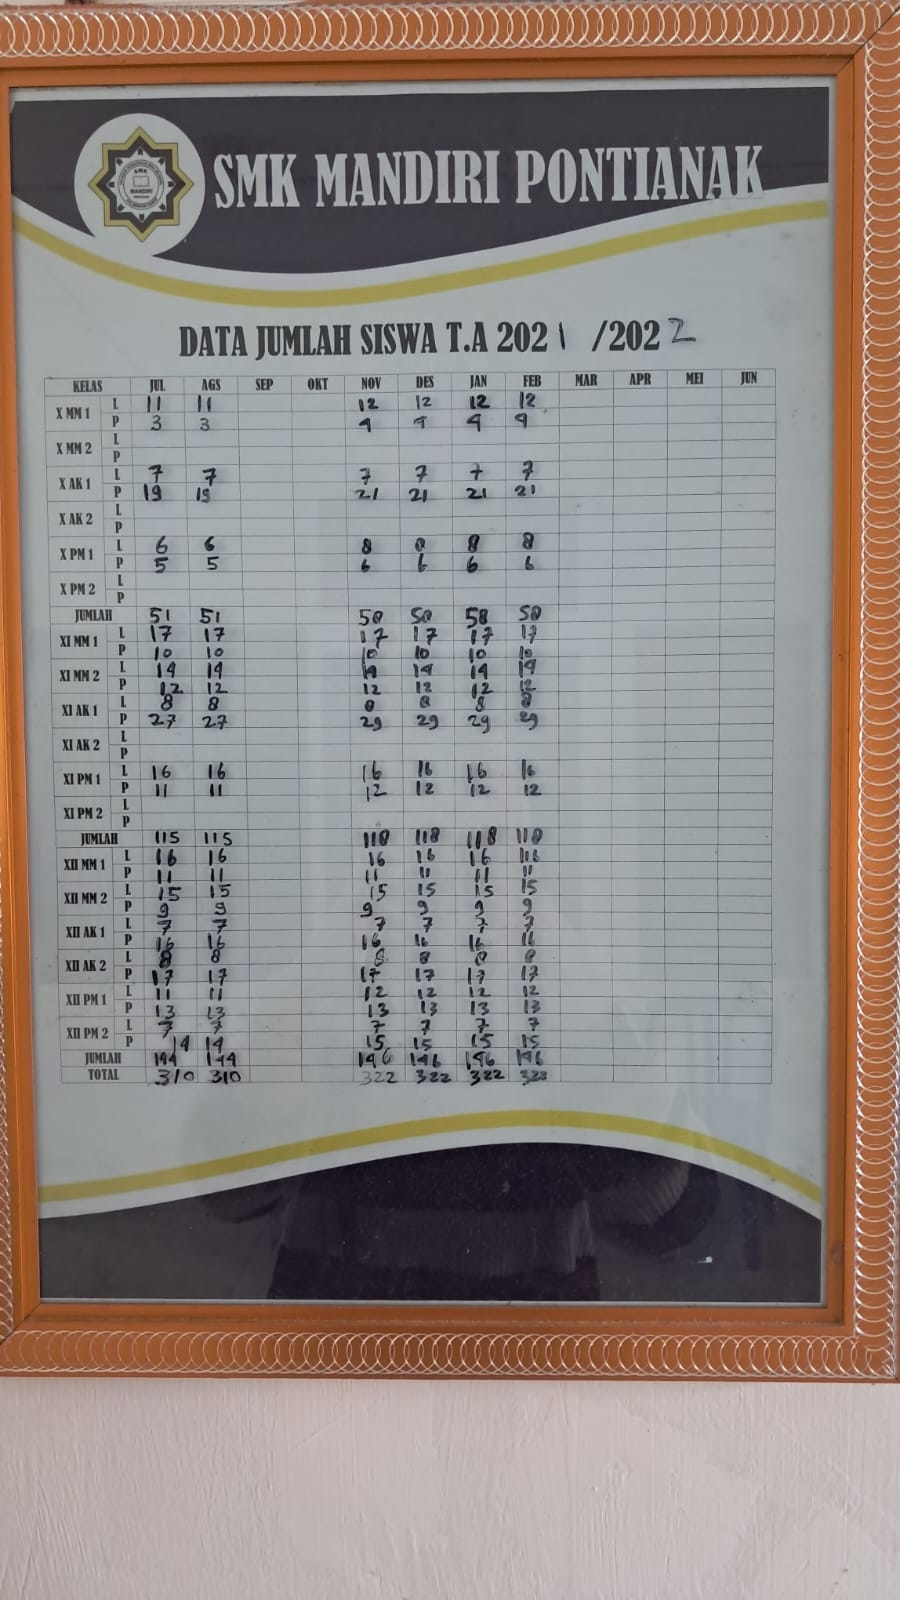 SMK
MANDIRI
SMK MANDIRI PONTIANAK
DATA JUMLAH SISWA T.A 2021 /2022
KELAS JUL AGS SEP OKT NOV DES JAN FEB MAR APR MEI JUN
X MM 1 L 11 11 12 12 12 12
P 3 3 4 4 4 4
X MM 2 L
P
X AK 1 L 7 7 7 7 7 7
P 19 19 21 21 21 21
X AK 2 L
P
X PM 1 L 6 6 8 8 8 8
P 5 5 6 6 6 6
X PM 2 L
P
JUMLAH 51 51 58 58 58 58
XI MM 1 L 17 17 17 17 17 17
P 10 10 10 10 10 10
XI MM 2 L 14 14 14 14 14 14
P 12 12 12 12 12 12
XI AK 1 L 8 8 8 8 8 8
P 27 27 29 29 29 29
XI AK 2 L
P
XI PM 1 L 16 16 16 16 16 16
P 11 11 12 12 12 12
XI PM 2 L
P
JUMLAH 115 115 118 118 118 118
XII MM 1 L 16 16 16 16 16
P 11 11 11 11 11 11
XII MM 2 L 15 15 15 15 15 15
P 9 9 9 9 9 9
XII AK 1 L 7 7 7 7 7 7
P 16 16 16 16 16 16
XII AK 2 L 8 8 8 8 8 8
P 17 17 17 17 17 17
XII PM 1 L 11 11 12 12 12 12
P 13 13 13 13 13 13
XII PM 2 L 7 7 7 7 7 7
P 14 14 15 15 15 15
JUMLAH 144 144 146 146 146 146
TOTAL 310 310 322 322 322